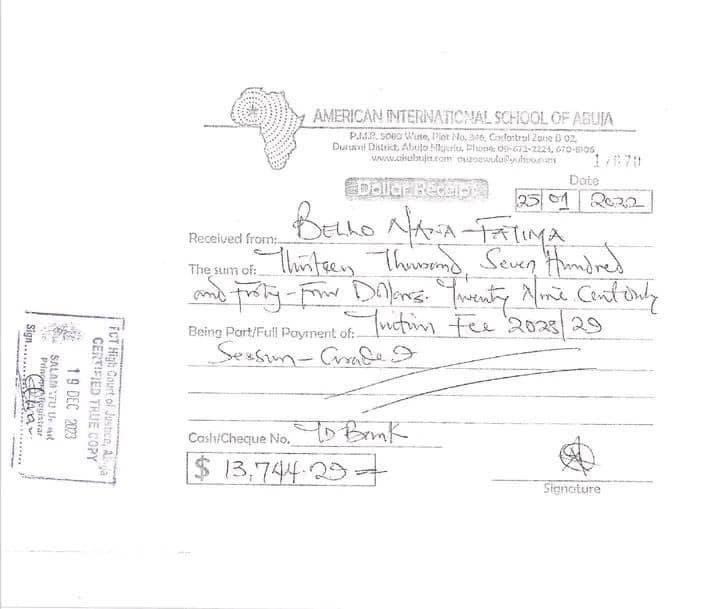 AMERICAN INTERNATIONAL SCHOOL OF ABUJA
P.M.B. 5090 Wuse, Plot No. 346, Cadastral Zone B 02,
Durumi District, Abuja Nigeria, Phone: 09-672-2224, 670-6106
www.aisabuja.com
Dollar Receipt
Date
25 01 2022
Received from: BELLO NANA-FATIMA
The sum of: Thirteen Thousand, Seven Hundred
and Forty-Four Dollars. Twenty Nine Cent only
Being Part/Full Payment of: Tuition Fee 2028/29
Session - Grade 9
Cash/Cheque No. TD Bank
$ 13,744.29
Signature
FCT High Court of Justice, Abuja
CERTIFIED TRUE COPY
19 DEC 2023
Principal Registrar
Sign